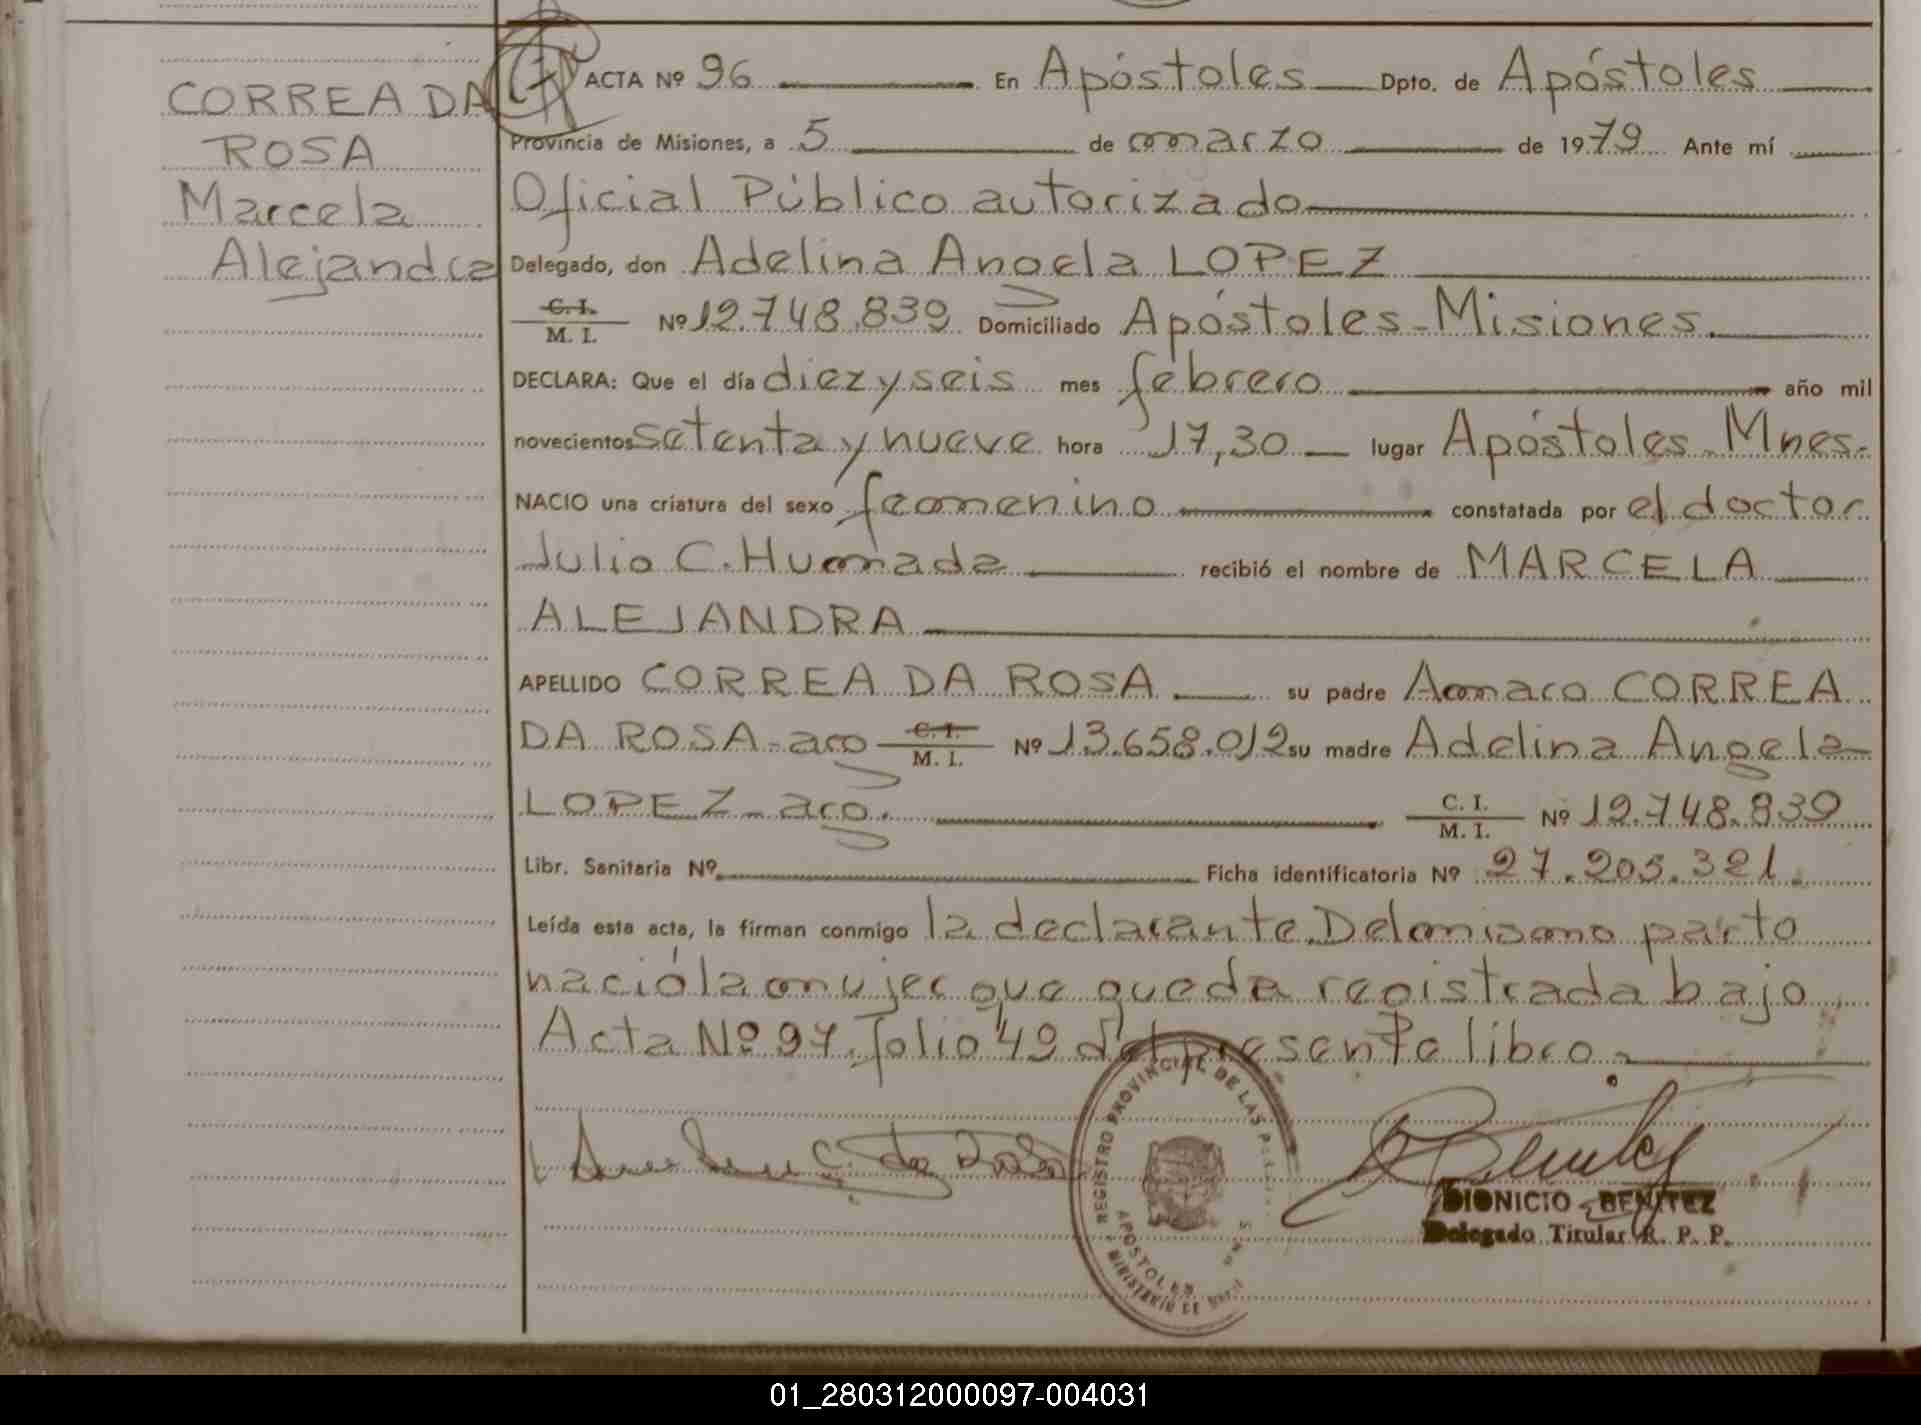 CORREA DA
ROSA
Marcela
Alejandra
ACTA Nº 96 En Apóstoles Dpto. de Apóstoles
Provincia de Misiones, a 5 de marzo de 1979 Ante mí
Oficial Público autorizado
Delegado, don Adelina Angela LOPEZ
C. I. / M. I. Nº 12.748.839 Domiciliado Apóstoles-Misiones.
DECLARA: Que el día diez y seis mes febrero año mil
novecientos setenta y nueve hora 17,30 lugar Apóstoles-Mnes.
NACIO una criatura del sexo femenino constatada por el doctor
Julio C. Humada recibió el nombre de MARCELA
ALEJANDRA
APELLIDO CORREA DA ROSA su padre CORREA
DA ROSA-arg C. I. / M. I. Nº 13.658.012 su madre Adelina Angela
LOPEZ-arg. C. I. / M. I. Nº 12.748.839
Libr. Sanitaria Nº Ficha identificatoria Nº 27.205.321.
Leída esta acta, la firman conmigo la declarante. Del mismo parto
nació la mujer que queda registrada bajo
Acta Nº 97. folio 49 del presente libro.
REGISTRO PROVINCIAL DE LAS
APOSTOLES
MINISTERIO DE
DIONICIO BENITEZ
Delegado Titular R. P. P.
01_280312000097-004031